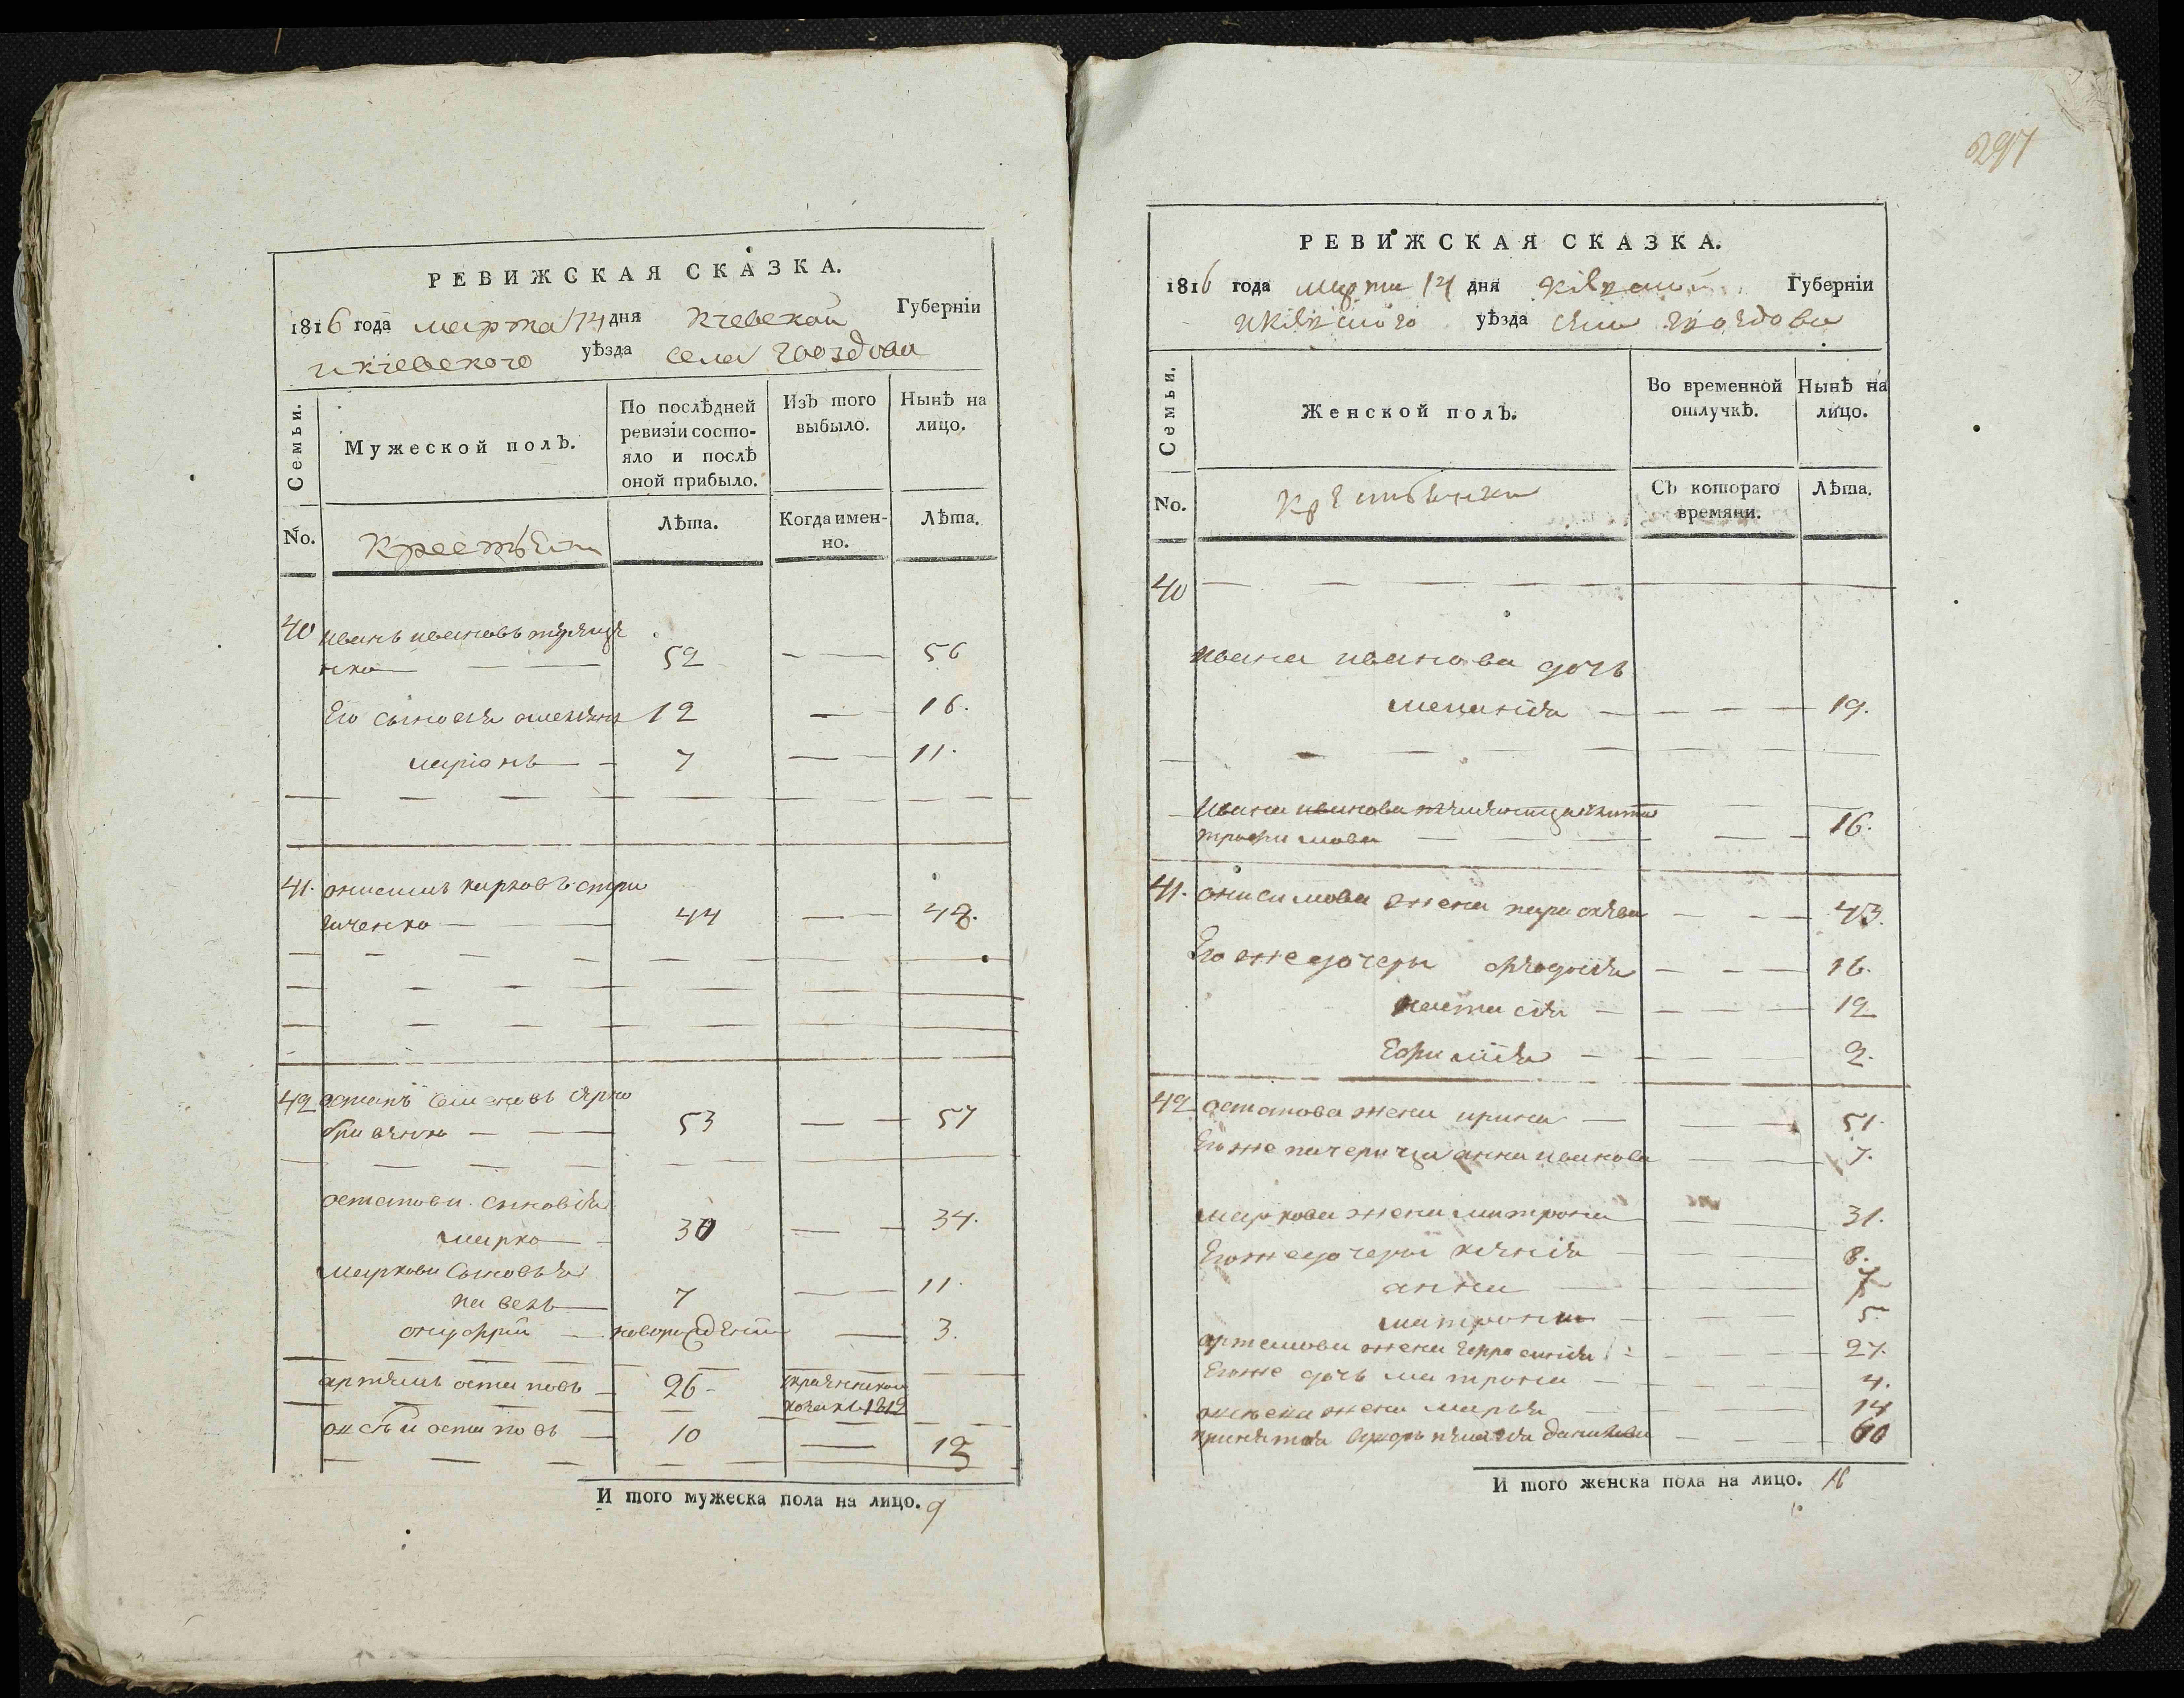 297
РЕВИЖСКАЯ СКАЗКА.
1816 года марта 14 дня Кіевской Губерніи
и кіевского уѣзда села Гвоздова
Семьи.
Мужеской полъ.
По послѣдней ревизіи состо-
яло и послѣ
оной прибыло.
Изъ того
выбыло.
Нынѣ на
лицо.
No.
Крестьяни
Лѣта.
Когда имен-
но.
Лѣта.
40 иванъ ивановъ
нко 52 — 56
Его сыновя 12 — 16.
маріанъ 7 — 11.
41. онисимъ карповъ стри
гаченко 44 — 48.
42 остапъ
53 — 57
остапови сыновія
марко 30 — 34.
маркови сыновья
павелъ 7 — 11.
онуфрій новорожденій — 3.
артемъ остаповъ 26 1812
остаповъ 10 — 13
И того мужеска пола на лицо. 9
РЕВИЖСКАЯ СКАЗКА.
1816 года марта 14 дня Кіевской Губерніи
и Кіевского уѣзда села Гвоздова
Семьи.
Женской полъ.
Во временной
отлучкѣ.
Нынѣ на
лицо.
No.
Крестьянки
Съ котораго
времяни.
Лѣта.
40
ивана иванова дочь
меланія 19.
ивана иванова
трофимова 16.
41. онисимова жена параскева 43.
Его же дочеры феодосія 16.
настасія 12
Ефимія 2.
42 остапова жена ирина 51.
Его же падчерица анна иванова 7.
маркова жена матрона 31.
Его же дочеры ксенія 8.
анна 7
матрона 5.
артемова жена Ефросинія 27.
Его же дочь матрона 4.
жена марья 14
данилова 60
И того женска пола на лицо. 16